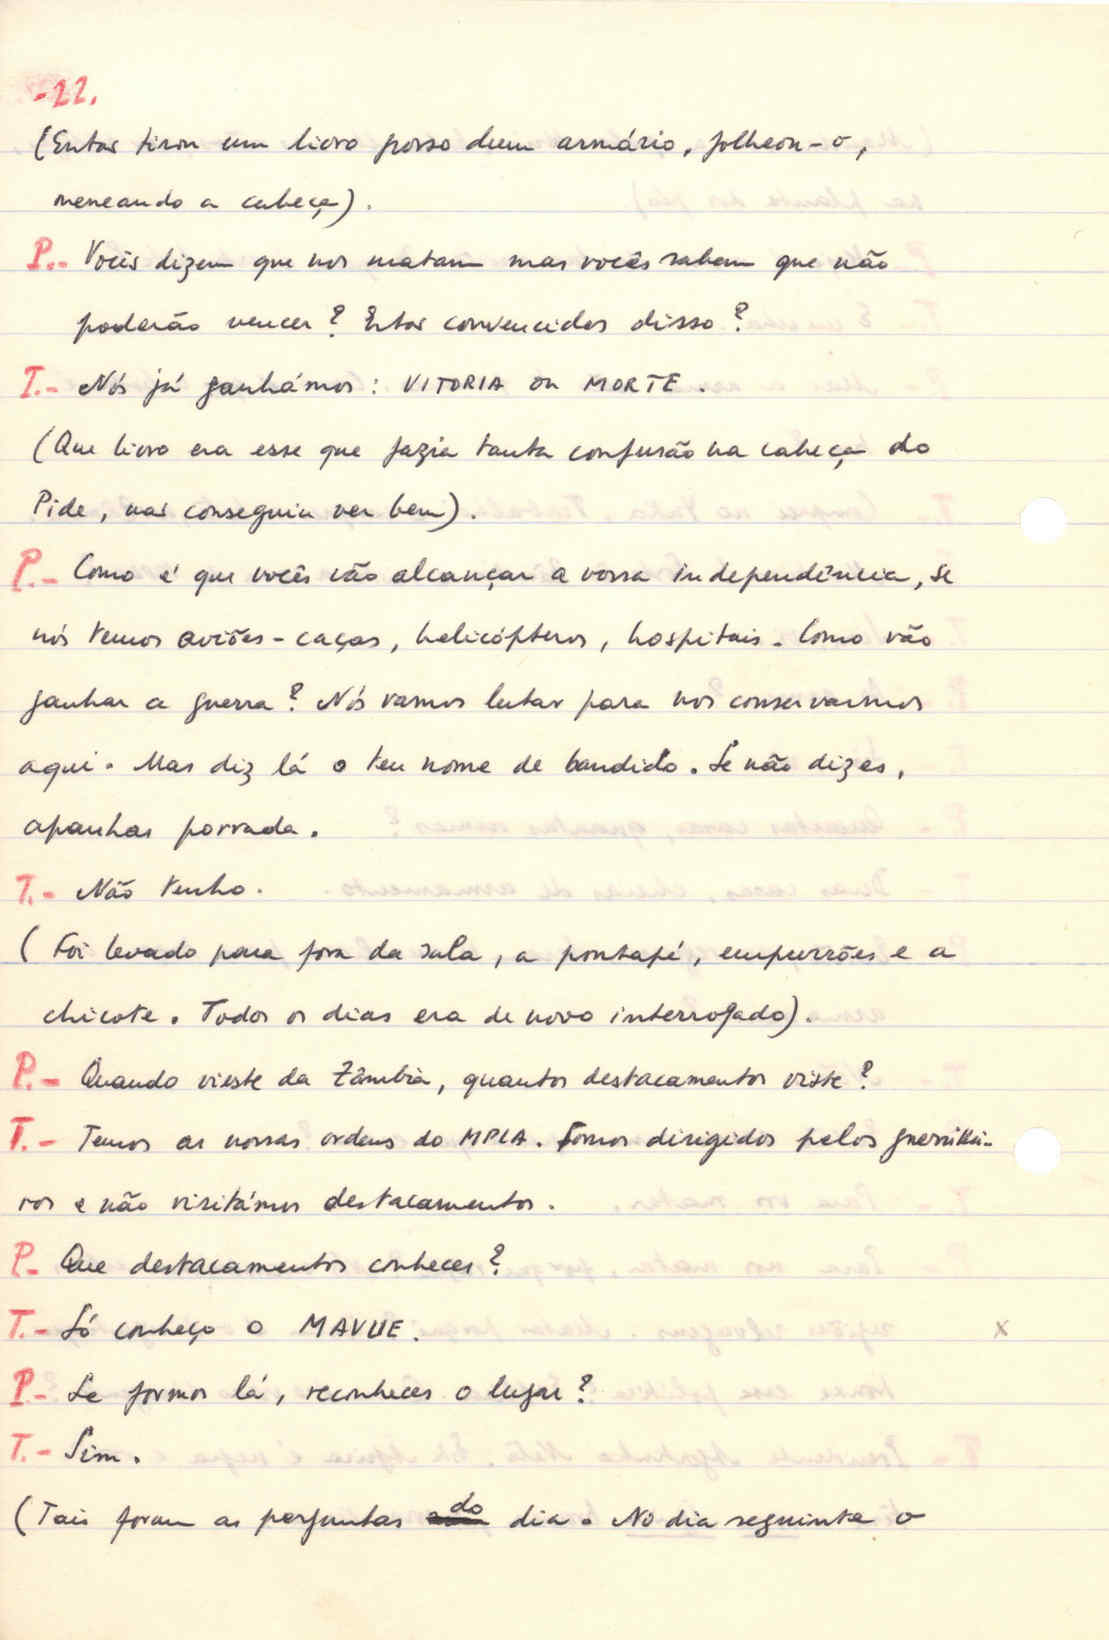 -22.
(Então tirou um livro grosso dum armário, folheou-o,
meneando a cabeça).
P.- Vocês dizem que nos matam mas vocês sabem que não
poderão vencer? Estás convencidos disso?
T.- Nós já ganhámos: VITORIA OU MORTE.
(Que livro era esse que fazia tanta confusão na cabeça do
Pide, não conseguiu ver bem).
P.- Como é que vocês vão alcançar a vossa independência, se
nós temos aviões-caças, helicópteros, hospitais. Como vão
ganhar a guerra? Nós vamos lutar para nos conservarmos
aqui. Mas diz lá o teu nome de bandido. Se não dizes,
apanhas porrada.
T.- Não tenho.
(Foi levado para fora da sala, a pontapé, empurrões e a
chicote. Todos os dias era de novo interrogado).
P.- Quando vieste da Zâmbia, quantos destacamentos viste?
T.- Temos as nossas ordens do MPLA. Somos dirigidos pelos guerrilhei-
ros e não visitámos destacamentos.
P- Que destacamentos conheces?
T.- Só conheço o MAVUE. x
P- Se formos lá, reconheces o lugar?
T.- Sim.
(Tais foram as perguntas do dia. No dia seguinte o